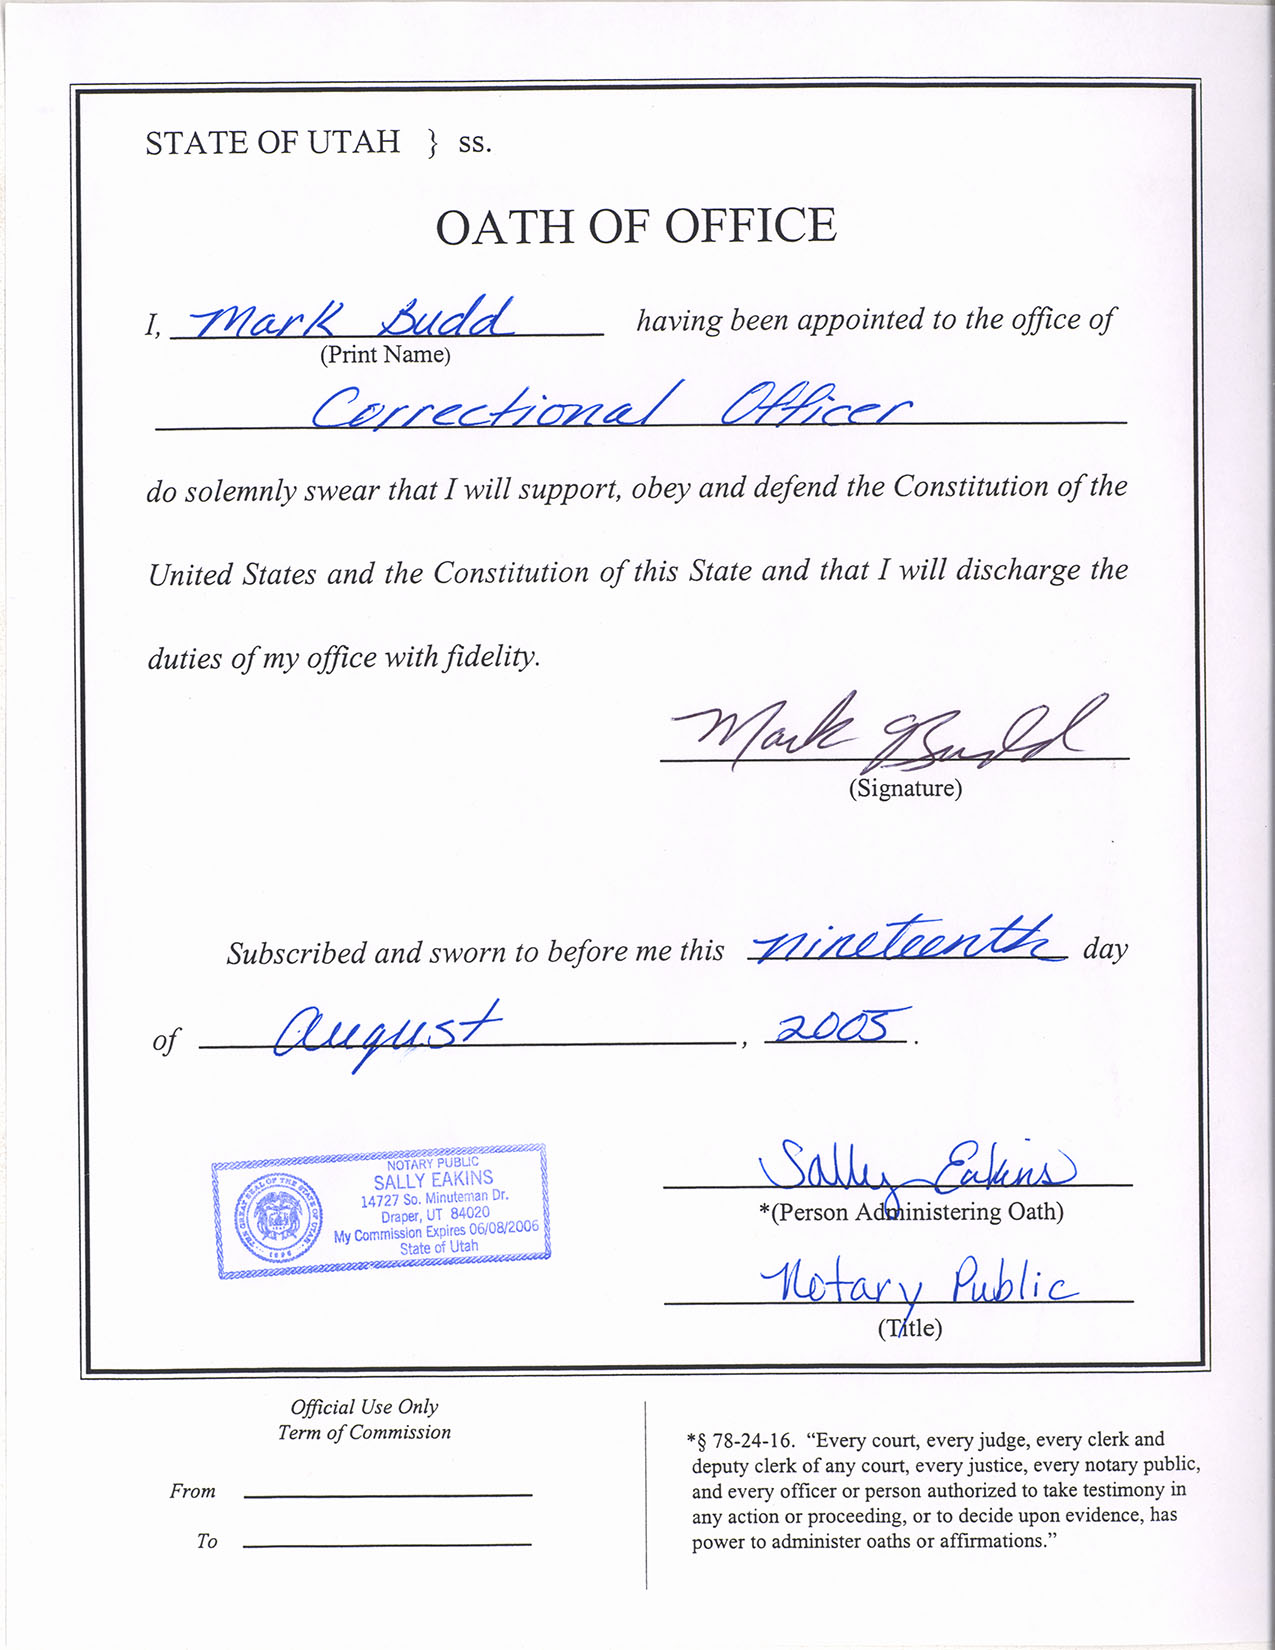 STATE OF UTAH } ss.
OATH OF OFFICE
I, Mark Budd having been appointed to the office of
(Print Name)
Correctional Officer
do solemnly swear that I will support, obey and defend the Constitution of the
United States and the Constitution of this State and that I will discharge the
duties of my office with fidelity.
Mark Budd
(Signature)
Subscribed and sworn to before me this nineteenth day
of August, 2005.
NOTARY PUBLIC
SALLY EAKINS
14727 So. Minuteman Dr.
Draper, UT 84020
My Commission Expires 06/08/2006
State of Utah
THE GREAT SEAL OF THE STATE OF UTAH
1896
Sally Eakins
*(Person Administering Oath)
Notary Public
(Title)
Official Use Only
Term of Commission
From
To
*§ 78-24-16. “Every court, every judge, every clerk and
deputy clerk of any court, every justice, every notary public,
and every officer or person authorized to take testimony in
any action or proceeding, or to decide upon evidence, has
power to administer oaths or affirmations.”